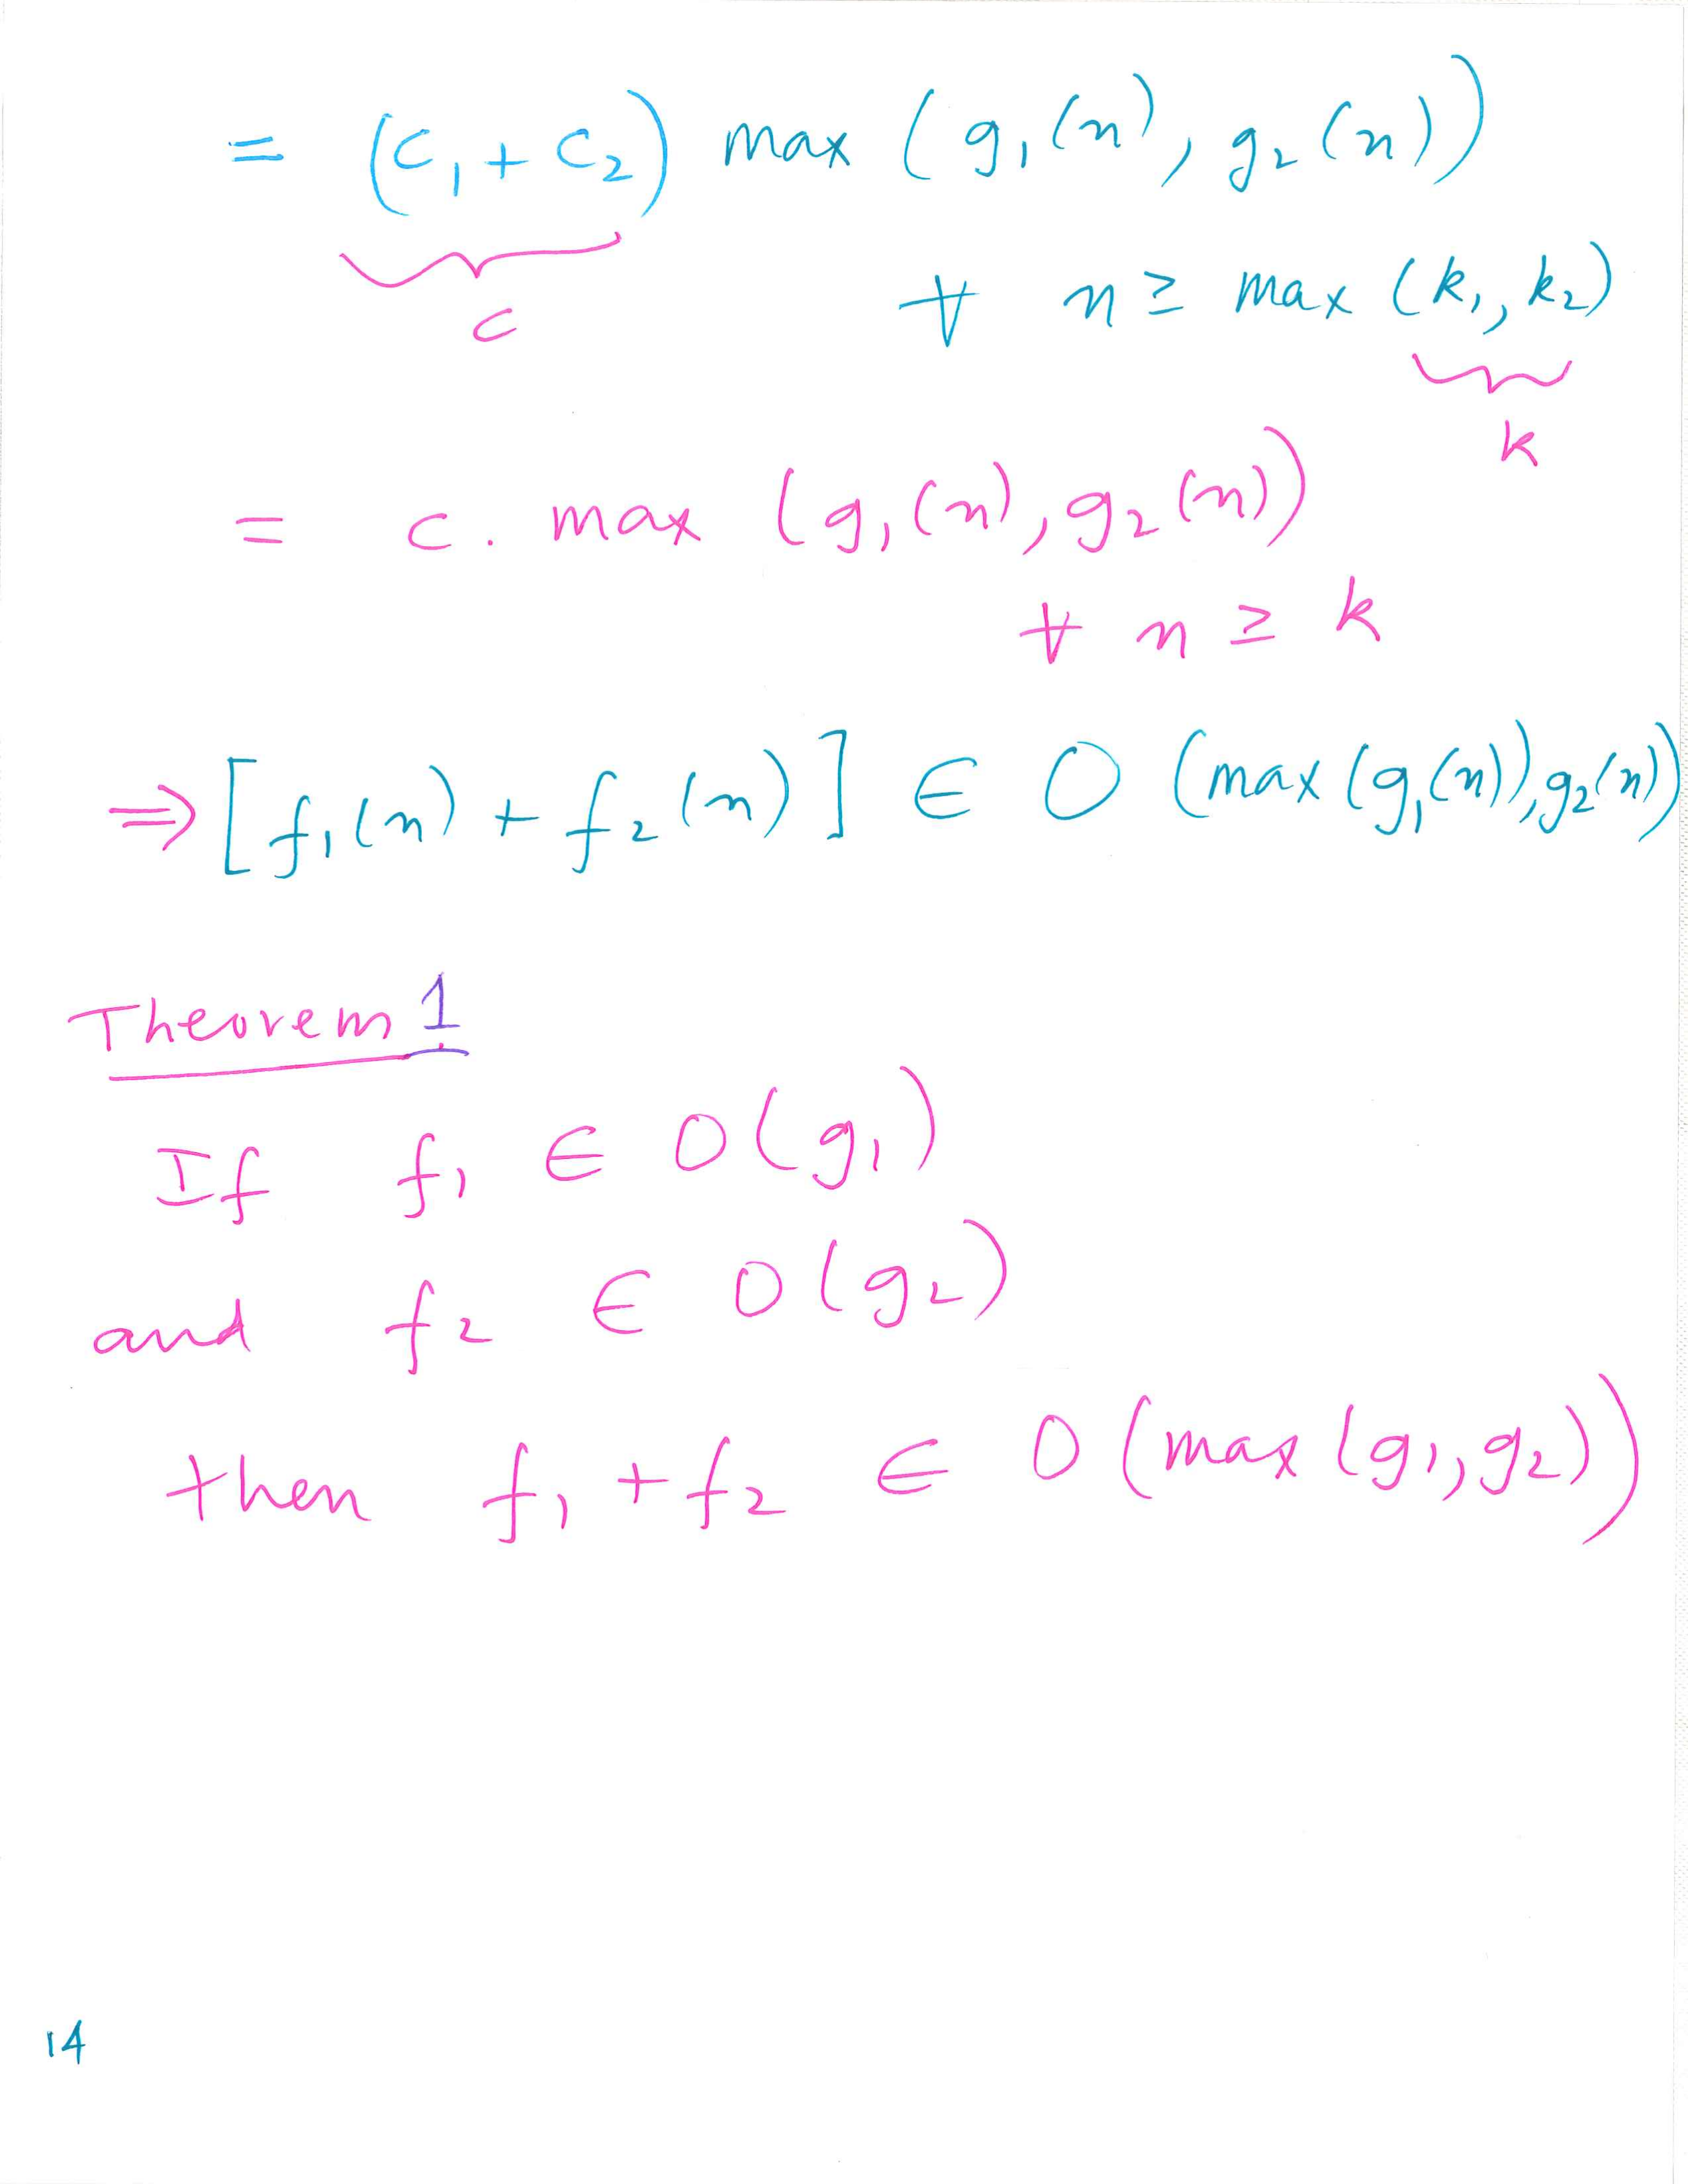 = (c₁ + c₂) max (g₁(n), g₂(n))
c
∀ n ≥ max (k₁, k₂)
k
= c. max (g₁(n), g₂(n))
∀ n ≥ k
⇒ [f₁(n) + f₂(n)] ∈ O (max (g₁(n)), g₂(n))
Theorem 1
If f₁ ∈ O(g₁)
and f₂ ∈ O(g₂)
then f₁ + f₂ ∈ O (max (g₁, g₂))
14